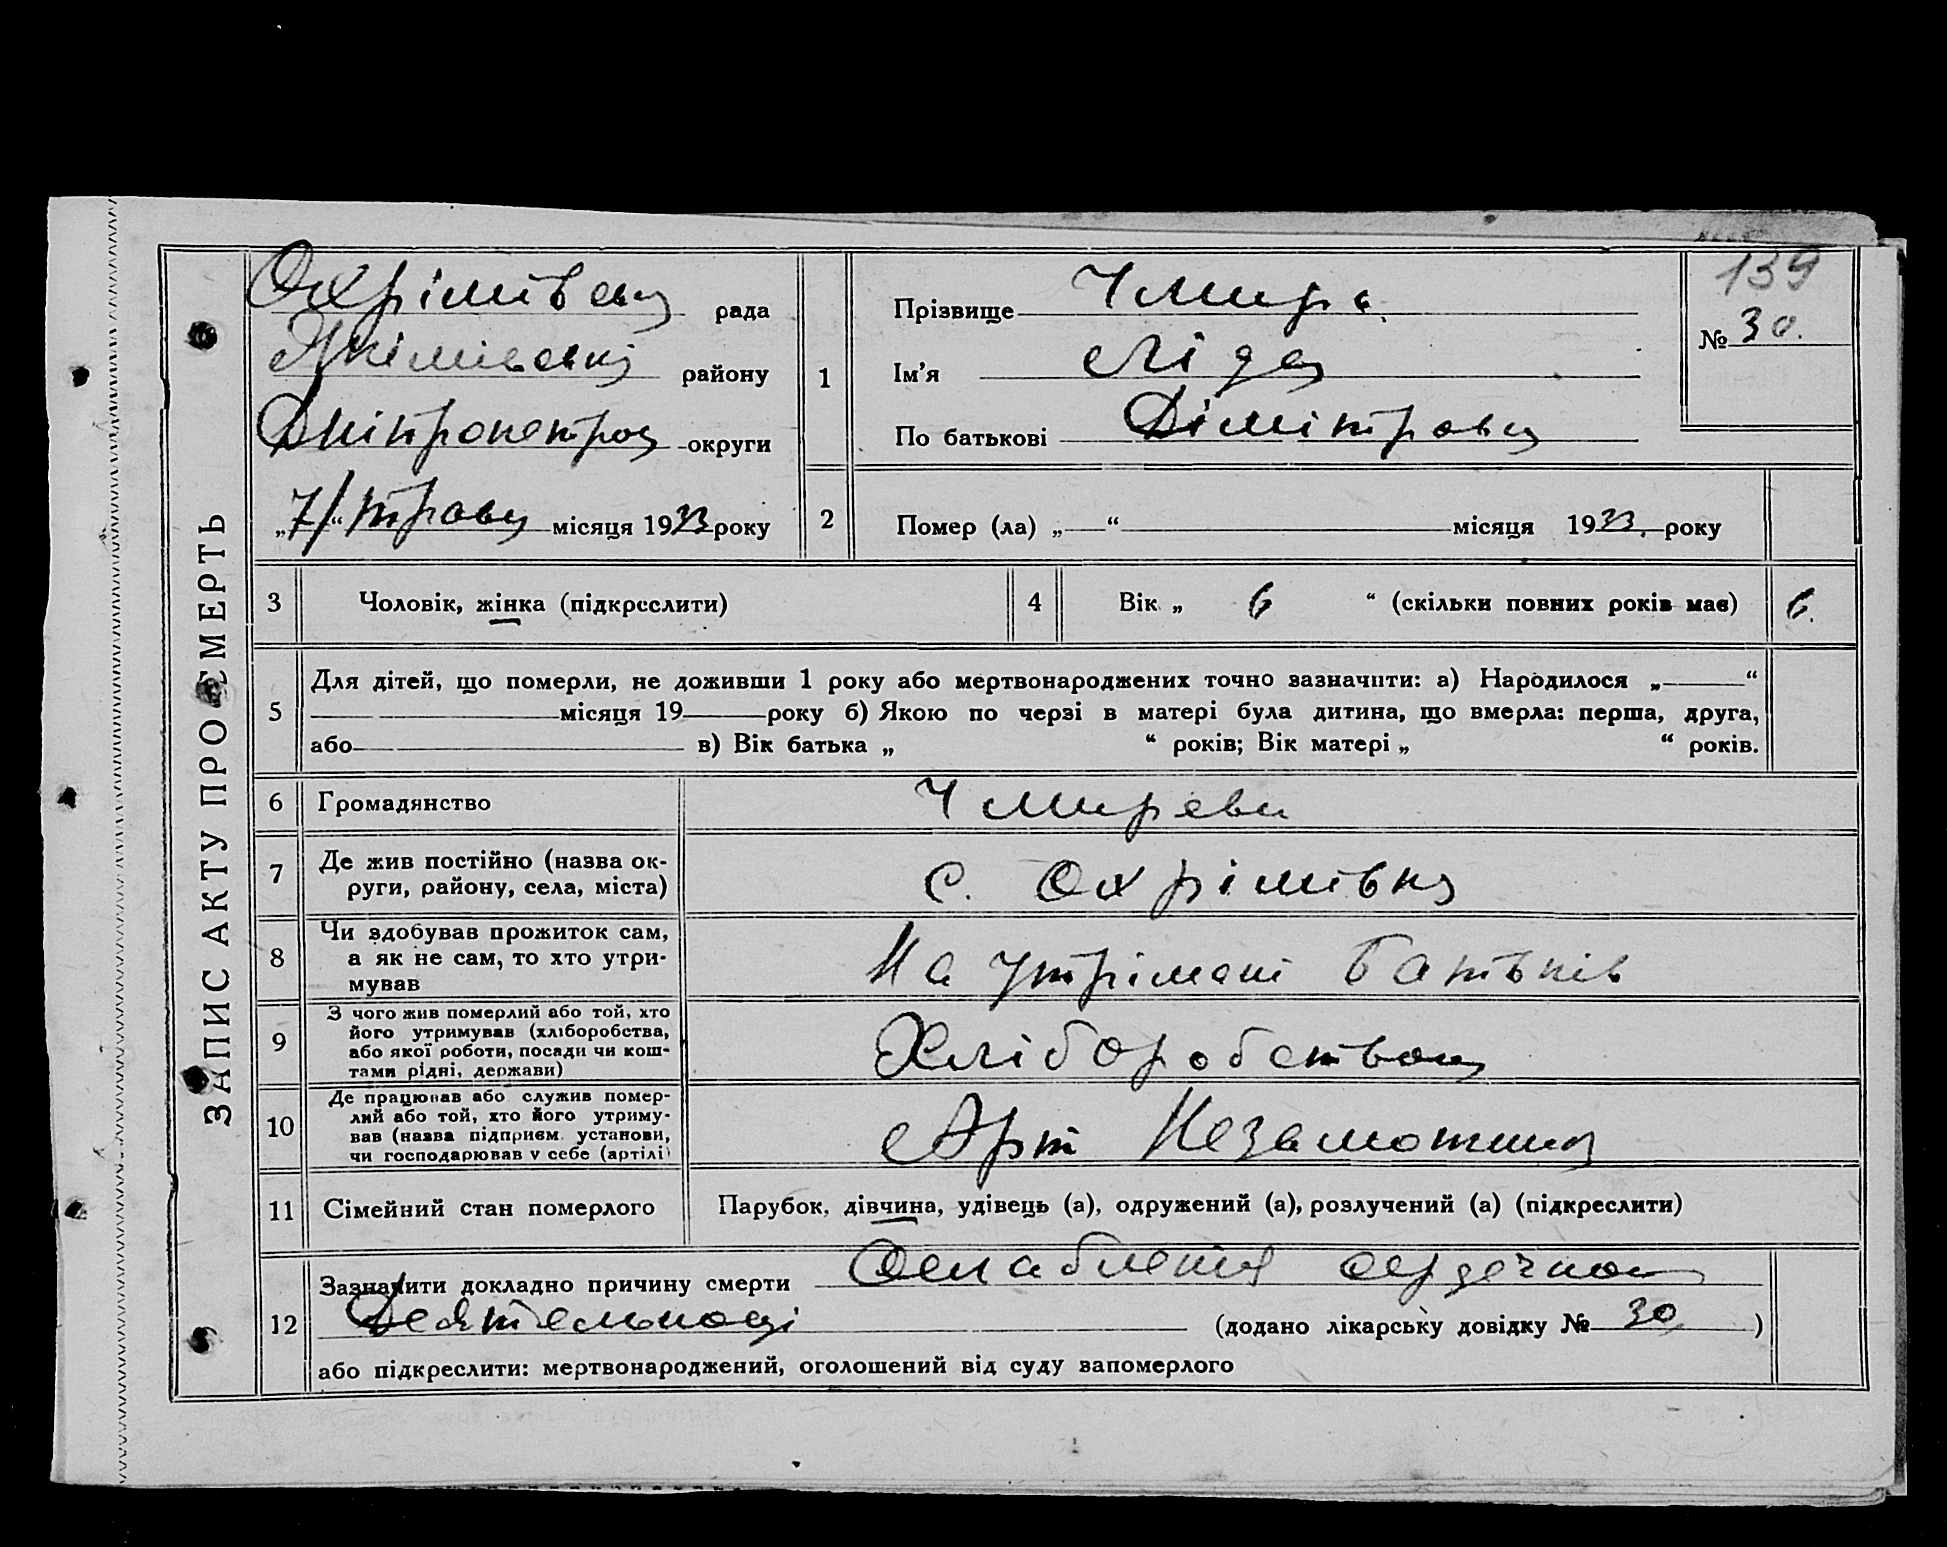 ЗАПИС АКТУ ПРО СМЕРТЬ
139
№ 30.
Охрімівська рада
Якімівські району
Дніпропетров округи
„7/“ трава місяця 1933 року
1
Прізвище Чмирь
Ім'я Ліда
По батькові Дімітровна
2 Помер (ла) „ “ місяця 1933. року
3 Чоловік, жінка (підкреслити)
4 Вік „ 6 “ (скільки повних років має) 6.
5 Для дітей, що померли, не доживши 1 року або мертвонароджених точно зазначити: а) Народилося „ “
місяця 19 року б) Якою по черзі в матері була дитина, що вмерла: перша, друга,
або в) Вік батька „ “ років; Вік матері „ “ років.
6 Громадянство
7 Де жив постійно (назва ок-
руги, району, села, міста)
с. Охрімівка
8 Чи здобував прожиток сам,
а як не сам, то хто утри-
мував
На утрімані батьків
9 З чого жив померлий або той, хто
його утримував (хліборобства,
або якої роботи, посади чи кош-
тами рідні, держави)
Хліборобством
10 Де працював або служив помер-
лий або той, хто його утриму-
вав (назва підприєм. установи,
чи господарював у себе (артілі)
Арт Незаможник
11 Сімейний стан померлого
Парубок, дівчина, удівець (а), одружений (а), розлучений (а) (підкреслити)
12 Зазначити докладно причину смерти Ослабления сердечной
Деятельносці (додано лікарську довідку № 30 )
або підкреслити: мертвонароджений, оголошений від суду запомерлого